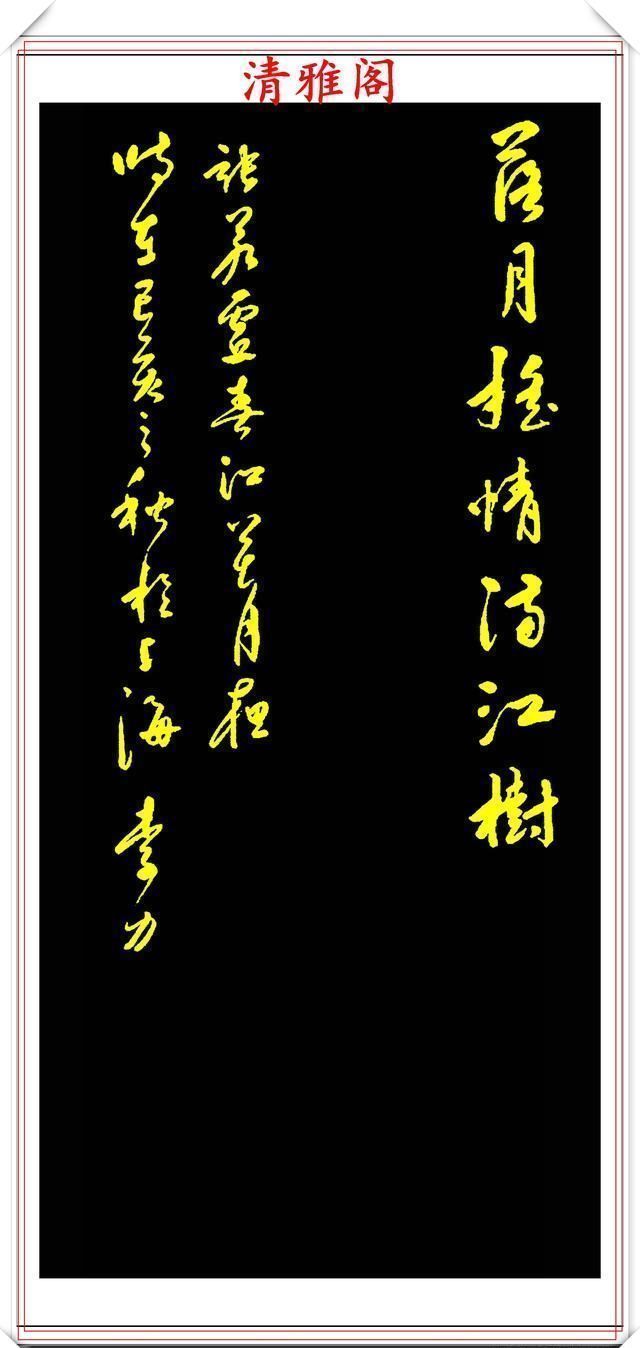 清雅阁
落月摇情满江樹
张若虚春江花月夜
时在己亥之秋於上海 李力